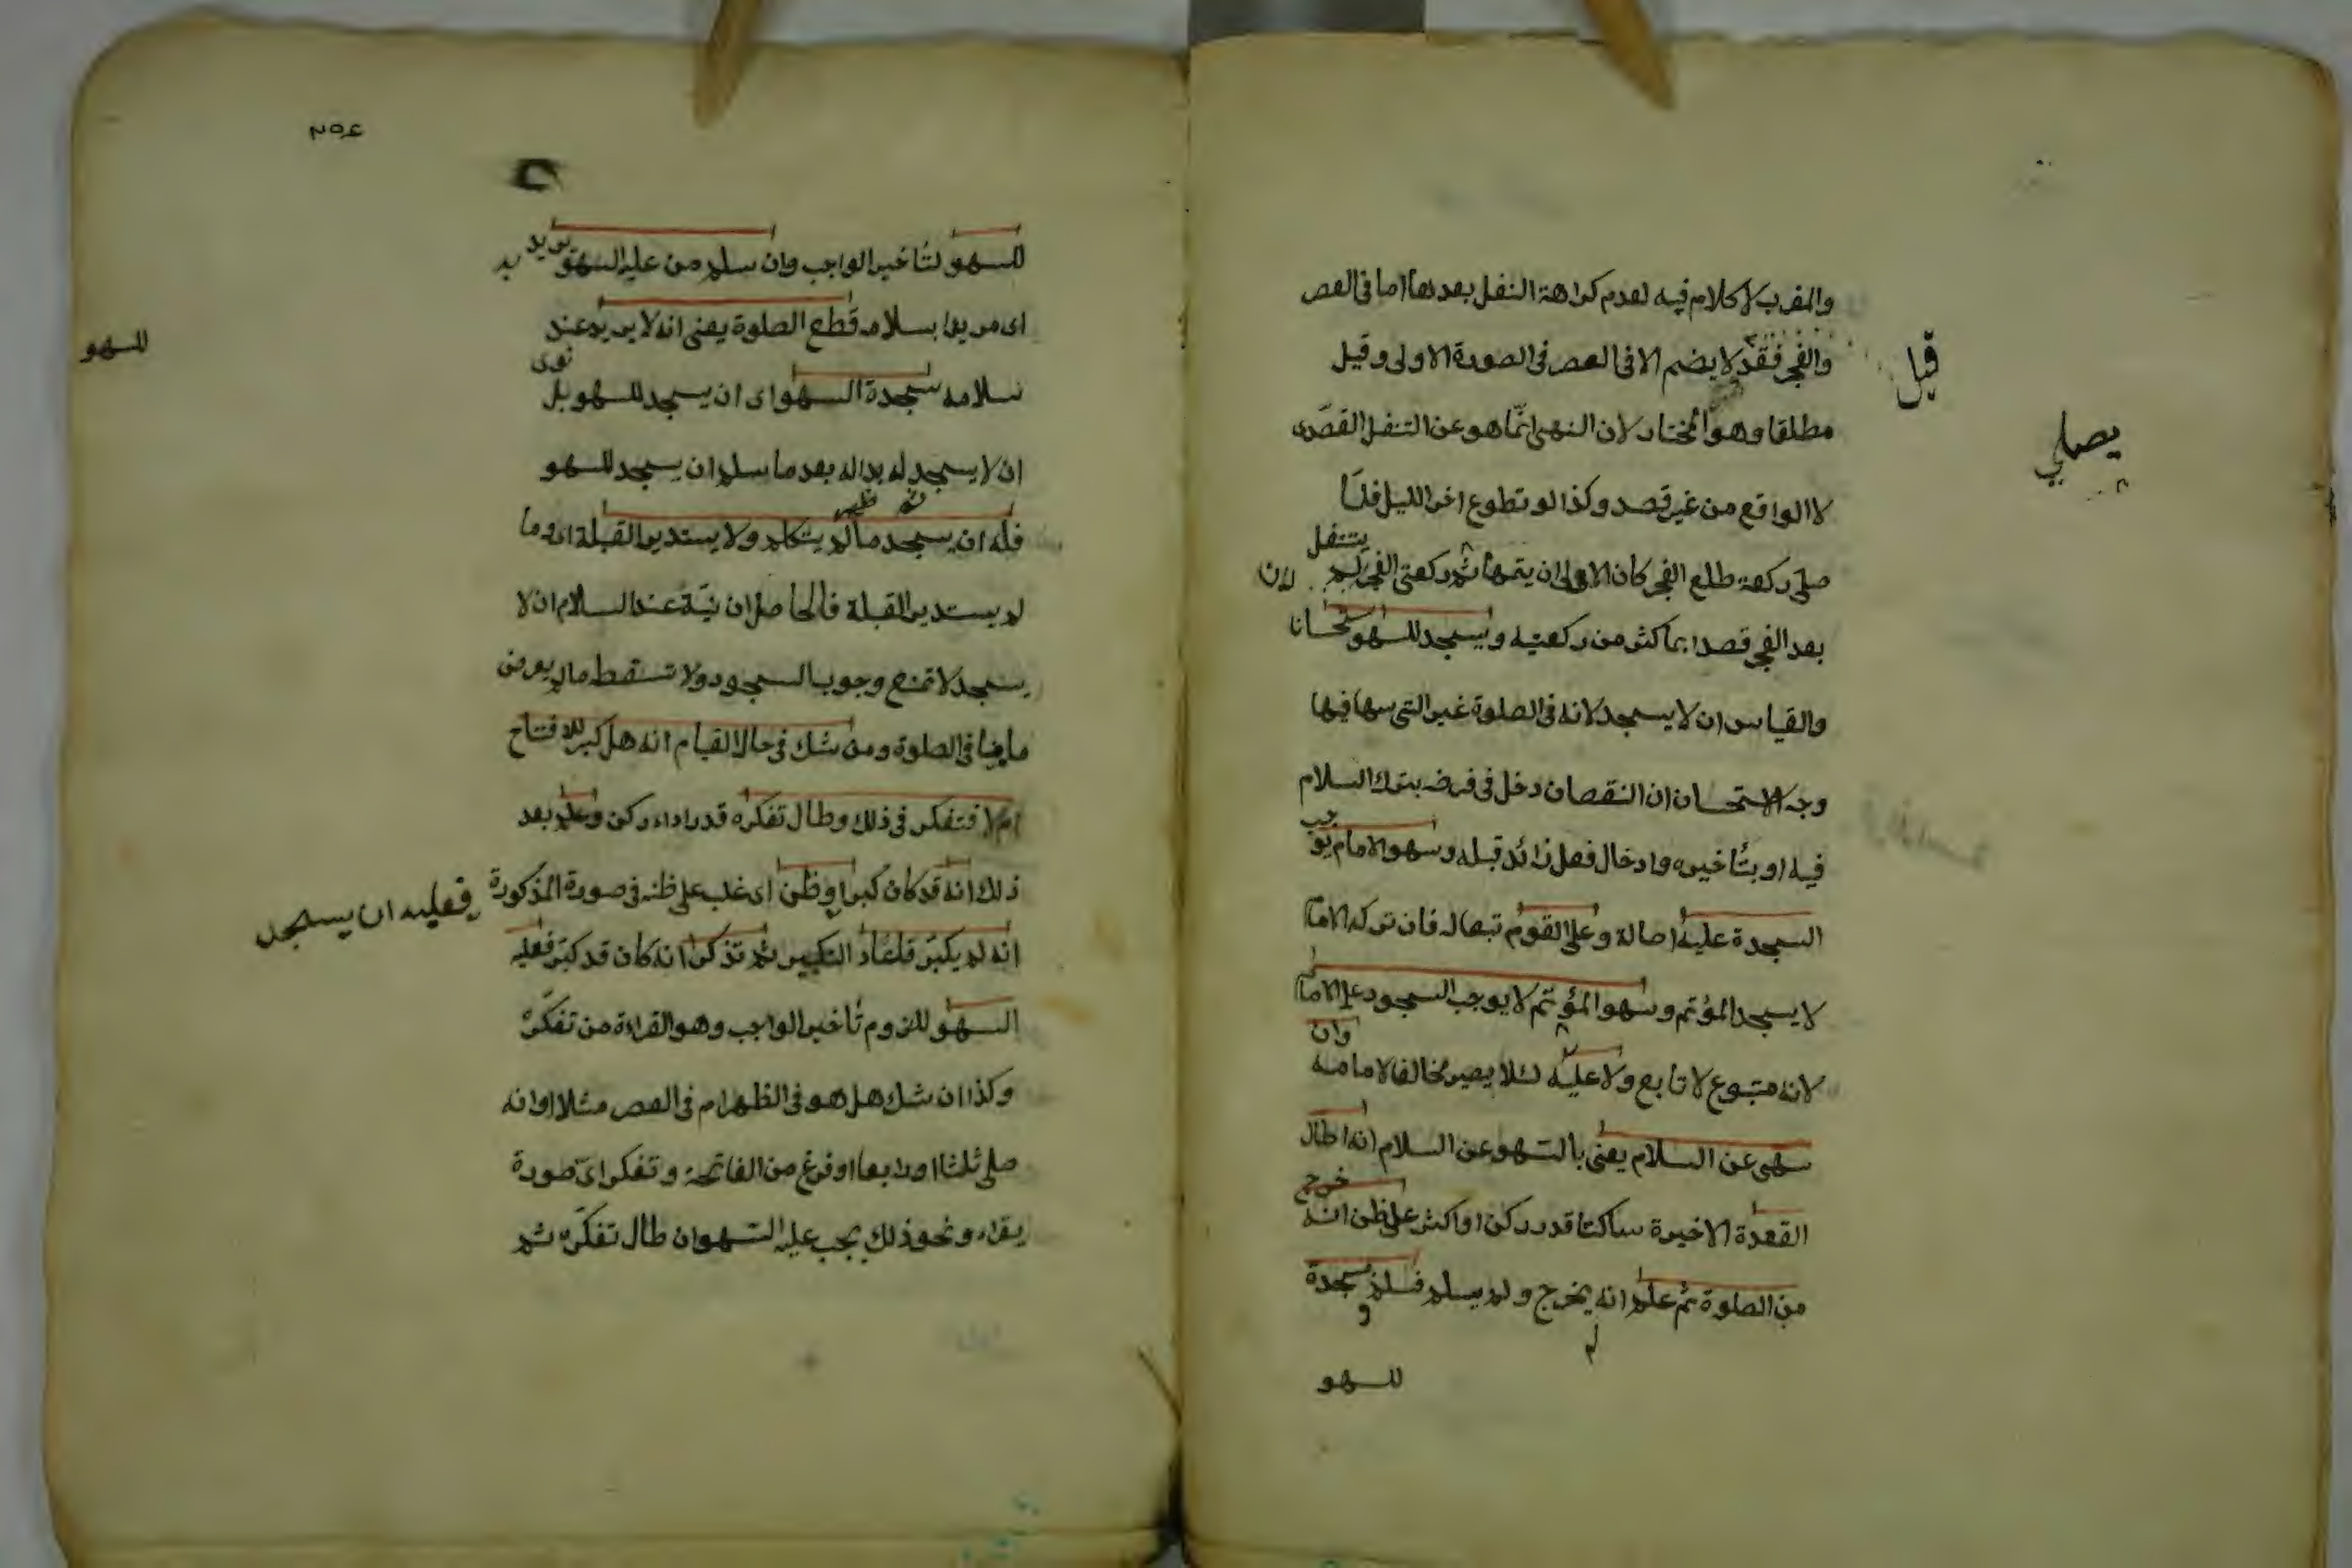 والمغرب لا كلام فيه لعدم كراهة النفل بعدها اما فى العصر
والفجر فقد قيل لا يضم الا فى العصر فى الصورة الاولى وقيل
قيل
مطلقا وهو المختار لان النهى انما هو عن التنفل القصدى
يصلي
لا الواقع من غير قصد وكذا لو تطوع اخر الليل فلما
صلى ركعة طلع الفجر كان الاولى ان يتمها ثم ركعتى الفجر لم يتنفل لان
بعد الفجر قصدا باكثر من ركعتيه ويسجد للسهو استحسانا
والقياس ان لا يسجد لانه فى الصلوة غير التى سها فيها
وجه الاستحسان ان النقصان دخل فى فرضه بترك السلام
فيه او بتأخيره وادخال فعل زائد قبله وسهو الامام يوجب
السجدة عليه اصالة وعلى القوم تبعا له فان تركه الامام
لا يسجد المؤتم وسهو المؤتم لا يوجب السجود على الامام
لانه متبوع لا تابع ولا عليه لئلا يصير مخالفا لامامه وان
سهى عن السلام يعنى بالسهو عن السلام انه اطال
القعدة الاخيرة ساكتا قدر ركن او اكثر على ظن انه خرج
من الصلوة ثم علم انه لم يخرج ولم يسلم فسلم وسجدة
للسهو
٢٥٤
للسهو لتأخير الواجب وان سلم من عليه السهو يريد به
اى مريدا بسلامه قطع الصلوة يعنى انه لا يريد عند
للسهو
سلامه سجدة السهو اى ان يسجد للسهو بل نوى
ان لا يسجد له بدا له بعد ما سلم ان يسجد للسهو
فله ان يسجد ما لم يتكلم ولا يستدبر القبلة اى وما
لم يستدبر القبلة فالحاصل ان نية عند السلام ان لا
يسجد لا تمنع وجوب السجود ولا تسقط ما لم يعرض
ما ينافى الصلوة ومن شك فى حال القيام انه هل كبر للافتتاح
ام لا فتفكر فى ذلك وطال تفكره قدر اداء ركن وعلم بعد
ذلك انه قد كان كبر او ظن اى غلب على ظنه فى صورة المذكورة
فعليه ان يسجد
انه لم يكبر فاعاد التكبير ثم تذكر انه كان قد كبر فعليه
السهو للزوم تأخير الواجب وهو القراءة من تفكره
وكذا ان شك هل هو فى الظهر ام فى العصر مثلا او انه
صلى ثلثا او رابعا او فرغ من الفاتحة وتفكر اى صورة
يقراء ونحو ذلك يجب عليه السهو ان طال تفكره ثم